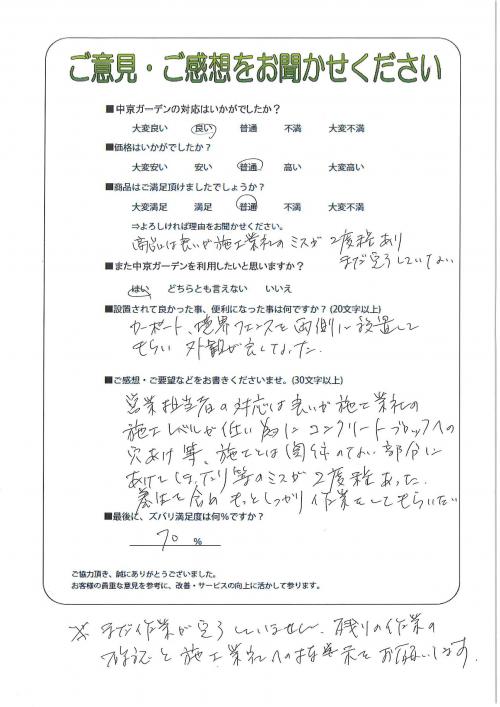 ご意見・ご感想をお聞かせください
■中京ガーデンの対応はいかがでしたか？
大変良い 良い 普通 不満 大変不満
■価格はいかがでしたか？
大変安い 安い 普通 高い 大変高い
■商品はご満足頂けましたでしょうか？
大変満足 満足 普通 不満 大変不満
⇒よろしければ理由をお聞かせください。
商品は良いが施工業社のミスが2度程あり
まだ完了していない
■また中京ガーデンを利用したいと思いますか？
はい どちらとも言えない いいえ
■設置されて良かった事、便利になった事は何ですか？(20文字以上)
カーポート、境界フェンスを両側に設置して
もらい外観が良くなった.
■ご感想・ご要望などをお書きくださいませ。(30文字以上)
営業担当者の対応は良いが施工業社の
施工レベルが低い為にコンクリートブロックへの
穴あけ等、施工とは関係のない部分に
あけてしまったり等のミスが2度程あった.
含めもっとしっかり作業をしてもらいたい
■最後に、ズバリ満足度は何％ですか？
70 %
ご協力頂き、誠にありがとうございました。
お客様の貴重な意見を参考に、改善・サービスの向上に活かして参ります。
※まだ作業が完了していません. 残りの作業の
確認と施工業社への指示をお願いします.